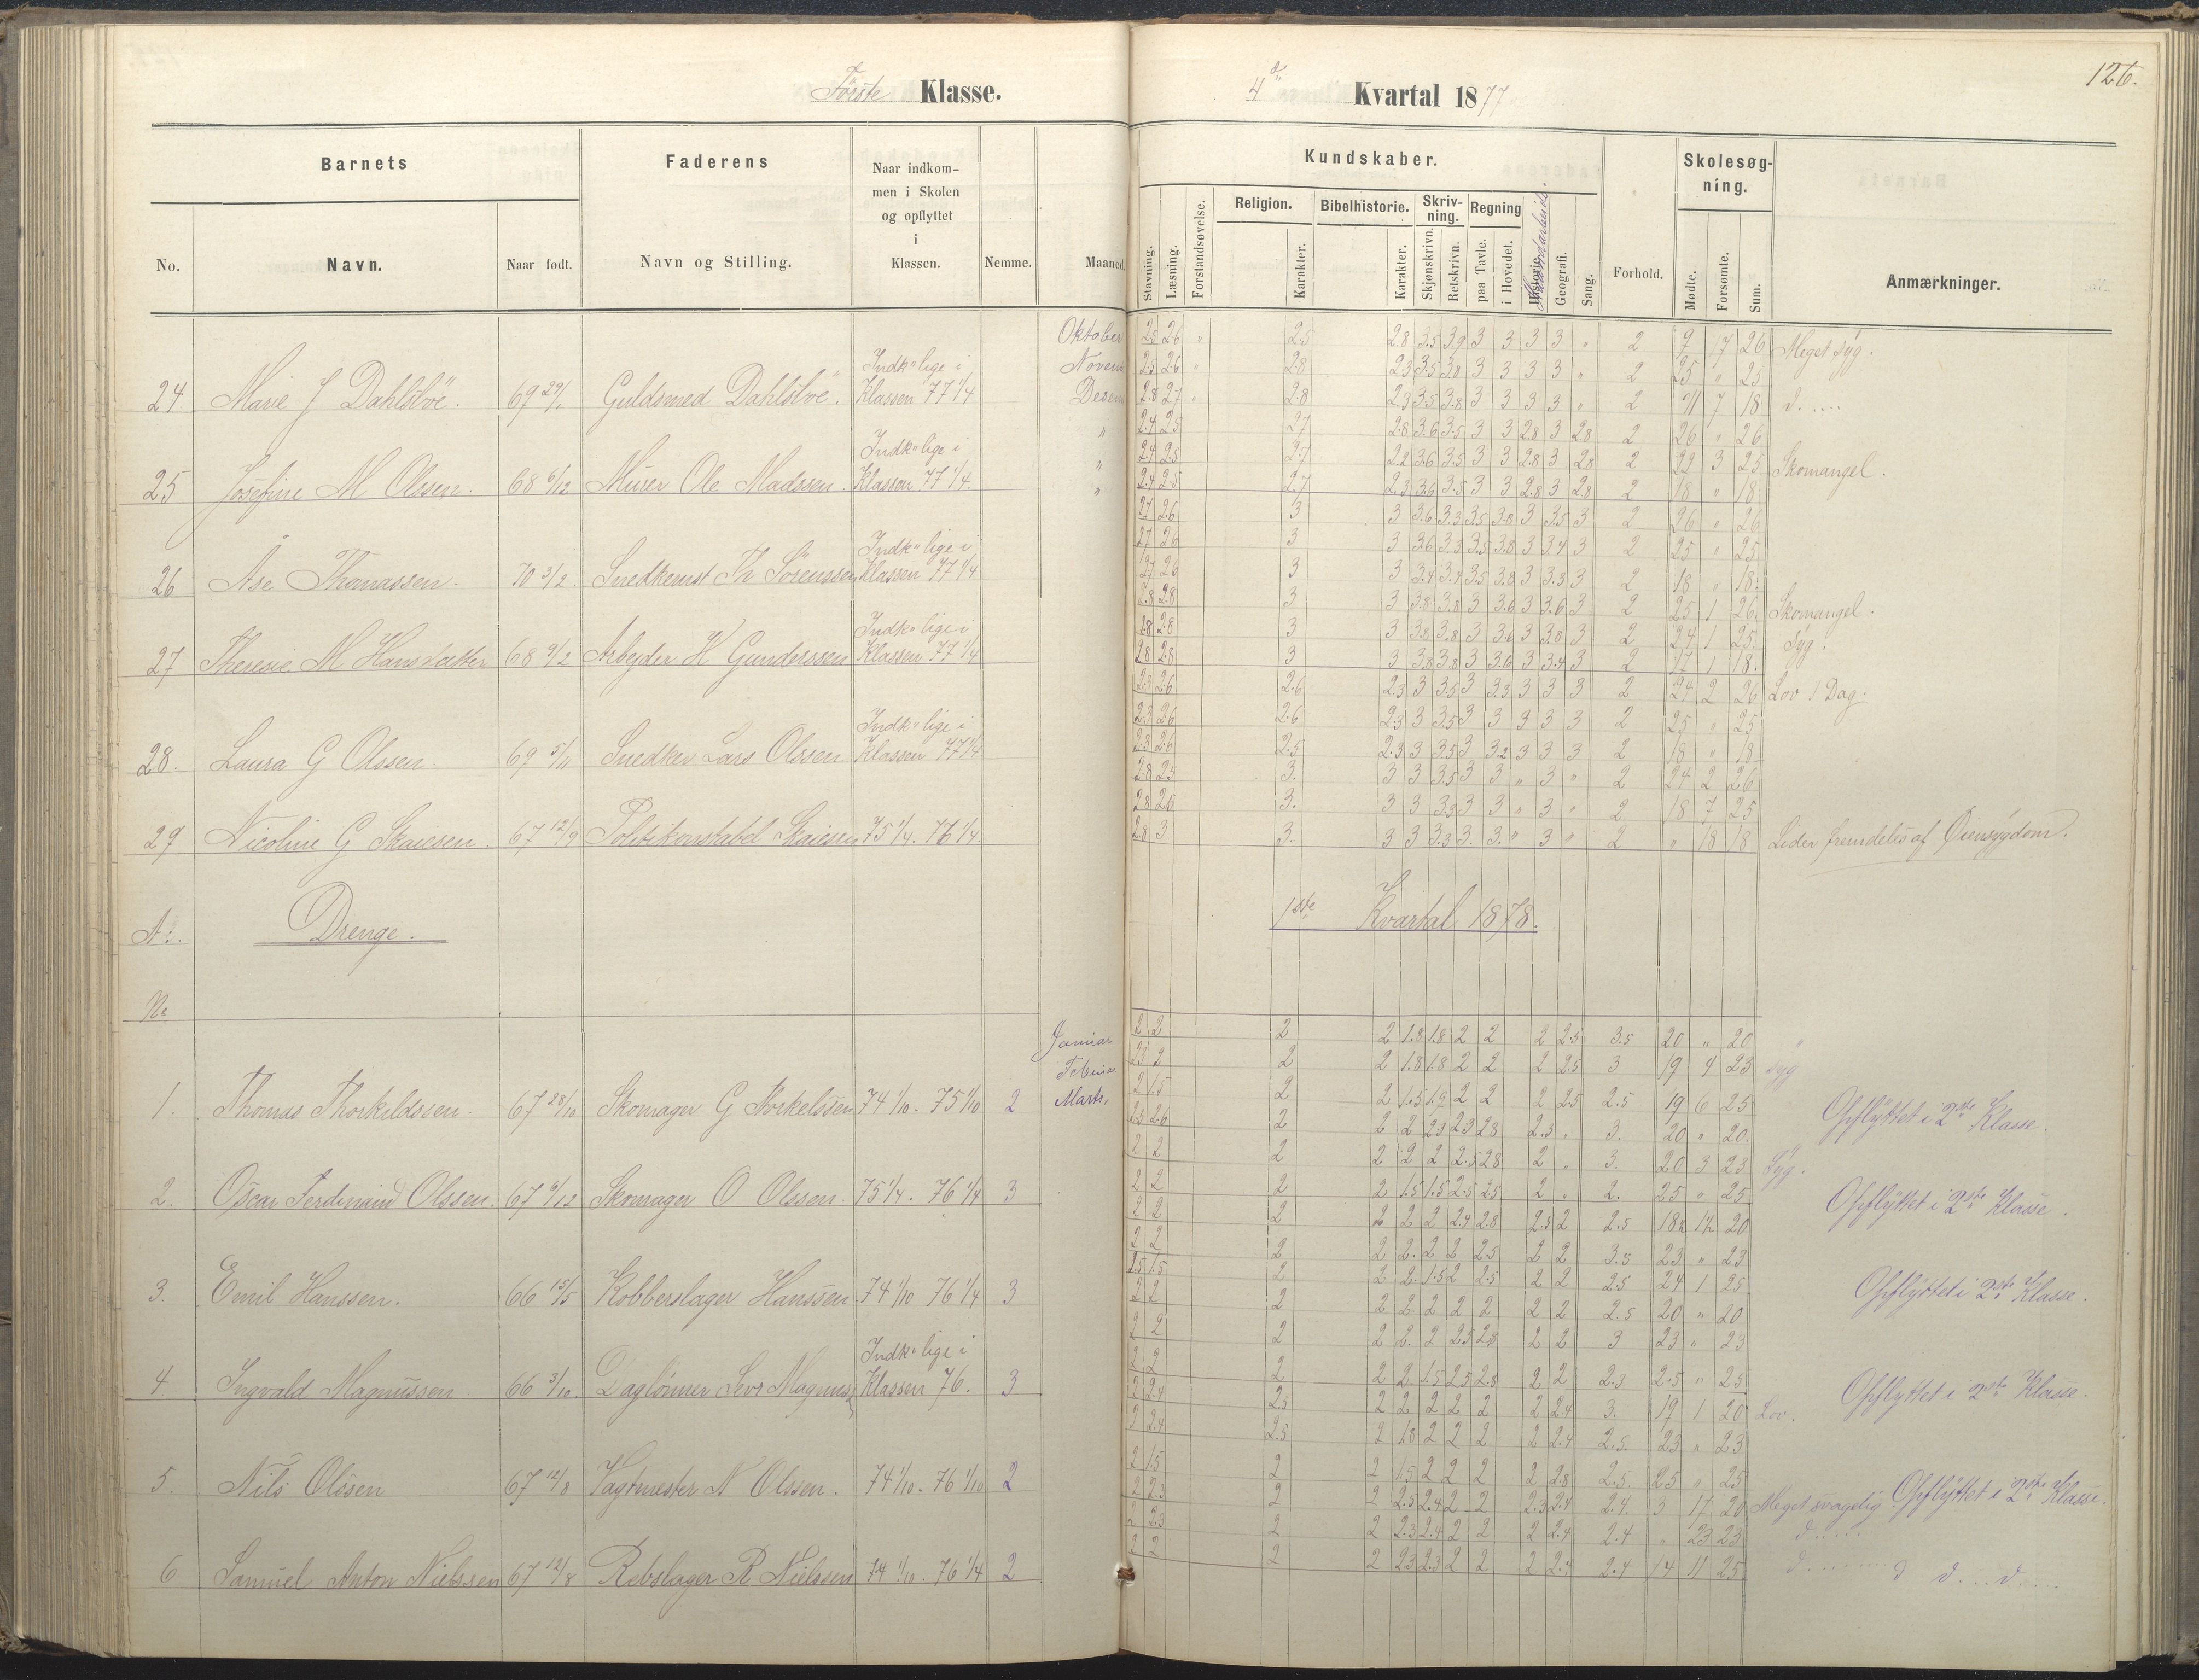 Første Klasse.
4de Kvartal 1877
126.
Barnets
Faderens
Naar indkommen i Skolen og opflyttet i Klassen.
Nemme.
Maaned.
No.
Navn.
Naar født.
Navn og Stilling.
Kundskaber.
Stavning.
Læsning.
Forstandsøvelse.
Religion.
Karakter.
Bibelhistorie.
Karakter.
Skrivning.
Skjønskrivn.
Retskrivn.
Regning
paa Tavle.
i Hovedet.
Historie.
Haandarbeide
Geografi.
Sang.
Forhold.
Skolesøgning.
Mødte.
Forsømte.
Sum.
Anmærkninger.
Oktober 2.5 2.6 " 2.5 2.8 3.5 3.9 3 3 3 3 " 2 9 17 26 Meget syg.
Novem 2.5 2.6 " 2.8 2.3 3.5 3.8 3 3 3 3 " 2 25 " 25
24. Marie J Dahlslöe. 69 29/1 Guldsmed Dahlslöe. Indk" lige i Klassen 77 1/4 Decem 2.8 2.7 " 2.8 2.3 3.5 3.8 3 3 3 3 " 2 11 7 18 d.....
" 2.4 2.5 2.7 2.8 3.6 3.5 3 3 2.8 3 2.8 2 26 " 26
" 2.4 2.5 2.7 2.2 3.6 3.5 3 3 2.8 3 2.8 2 22 3 25 Skomangel.
25 Josefine M Olssen. 68 6/12 Murer Ole Madssen. Indk" lige i Klassen 77 1/4. " 2.4 2.5 2.7 2.3 3.6 3.5 3 3 2.8 3 2.8 2 18 " 18
2.7 2.6 3 3 3.6 3.3 3.5 3.8 3 3.5 3 2 26 " 26
2.7 2.6 3 3 3.6 3.3 3.5 3.8 3 3.4 3 2 25 " 25
26 Åse Thomassen. 70 3/2 Snedkermst Th Sörenssen Indk" lige i Klassen 77 1/4 2.7 2.6 3 3 3.4 3.4 3.5 3.8 3 3.3 3 2 18 " 18.
2.8 2.8 3 3 3.8 3.8 3 3.6 3 3.6 3 2 25 1 26. Skomangel.
2.8 2.8 3 3 3.8 3.8 3 3.6 3 3.8 3 2 24 1 25. Syg.
27 Theresie M Hansdatter 68 9/2 Arbejder H Gunderssen Indk" lige i Klassen 77 1/4 2.8 2.8 3 3 3.8 3.8 3 3.6 3 3.4 3 2 17 1 18.
2.3 2.6 2.6 2.3 3 3.5 3 3.3 3 3 3 2 24 2 26 Lov 1 Dag.
2.3 2.6 2.6 2.3 3 3.5 3 3 3 3 3 2 25 " 25
28. Laura G Olssen. 69 5/11 Snedker Lars Olssen. Indk" lige i Klassen 77 1/4 2.3 2.6 2.5 2.3 3 3.5 3 3.2 3 3 3 2 18 " 18
2.8 2.5 3. 3 3 3.5 3 3 " 3 " 2 24 2 26
2.8 2.8 3. 3 3 3.3 3 3 " 3 " 2 18 7 25
29 Nicoline G Skaiesen. 67 12/9 Politikonstabel Skaiesen 75 1/4. 76 1/4 2.8 3. 3. 3 3 3.3 3. 3. " 3 " 2 " 18 18 Lider fremdeles af Øiensygdom.
A:. Drenge.
1ste Kvartal 1878.
No
Januar 2 2 2 2 1.8 1.8 2 2 2 2.5 3.5 20 " 20 "
Februar 2.3 2 2 2 1.8 1.8 2 2 2 2.5 3 19 4 23 Syg
1. Thomas Thorkildssen. 67 28/10 Skomager G Thorkelssen 74 1/10. 75 1/10 2 Marts. 2 1.5 2 2 1.5 1.9 2 2 2 2.5 2.5 19 6 25 Opflyttet i 2den Klasse.
2.5 2.6 2 2 2 2.3 2.3 2.8 2.3 " 3. 20 " 20. "
2 2 2 2 2 2 2.5 2.8 2 " 3. 20 3 23 Syg.
2. Oscar Ferdinand Olssen. 67 6/12 Skomager O Olssen. 75 1/4. 76 1/4 3 2 2 2 2 1.5 1.5 2.5 2.5 2 " 2. 25 " 25 Opflyttet i 2den Klasse.
2 2 2 2 2 2 2.4 2.8 2.5 2 2.5 18½ 1½ 20
2 2 2 2 2. 2 2 2.5 2 2 3.5 23 " 23
3. Emil Hanssen. 66 15/5 Kobberslager Hanssen 74 1/10 76 1/4 3 1.5 1.5 2 2 2. 1.5 2 2.5 2 2 2.5 24 1 25 Opflyttet i 2den Klasse.
2 2 2 2 2 2 2 2 2 2 2.5 20 " 20
2 2 2 2 2. 2 2.5 2.8 2 2 3 23 " 23
4. Ingvald Magnussen 66 3/10. Daglønner Sevr Magnus Indk" lige i Klassen 76. 3 2 2 2 2 2 1.5 2.5 2.8 2 2 2.3 25 " 25 Opflyttet i 2den Klasse.
2 2.4 2.5 2 2 2 2 2 2 2.4 3. 19 1 20 Lov.
2 2.4 2.5 2 1.8 2 2 2 2 2.4 2.5. 23 " 23
5. Nils Olssen 67 12/8 Vagtmester N Olssen. 74 1/10. 76 1/10 2 2 1.5 2 2 1.5 2 2 2 2 2.8 2.5. 25 " 25 Opflyttet i 2den Klasse.
2 2.3 2 2 2.5 2.4 2 2 2.3 2.4 2.4. 3 17 20 Meget svagelig
2 2.3 2 2 2.3 2.4 2 2 2 2.4 2.4 " 23 23 d.....
6 Samuel Anton Nielssen 67 12/8 Rebslager R Nielssen 74 1/10. 76 1/4 2 2 2 2 2 2.3 2.3 2 2 2 2.4 2.4 14 11 25 d....... d d...d....